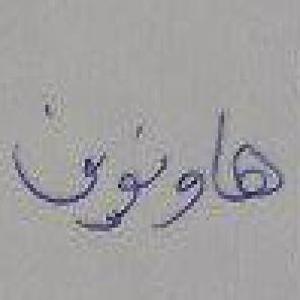 هاونوین